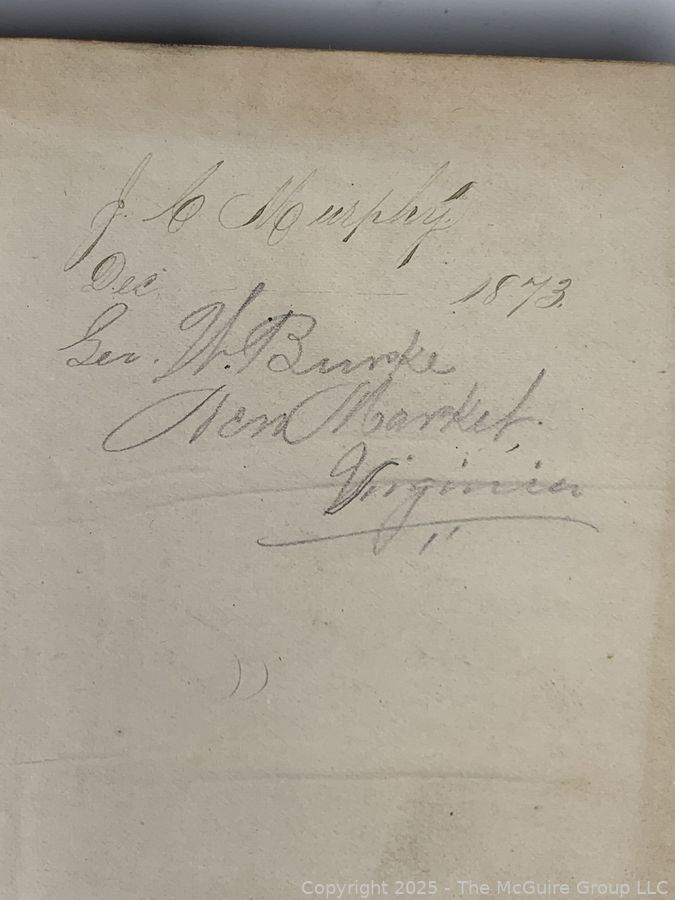 J. C Murphy
Dec 1873.
Geo. W. Burke
New Market,
Virginia
Copyright 2025 - The McGuire Group LLC